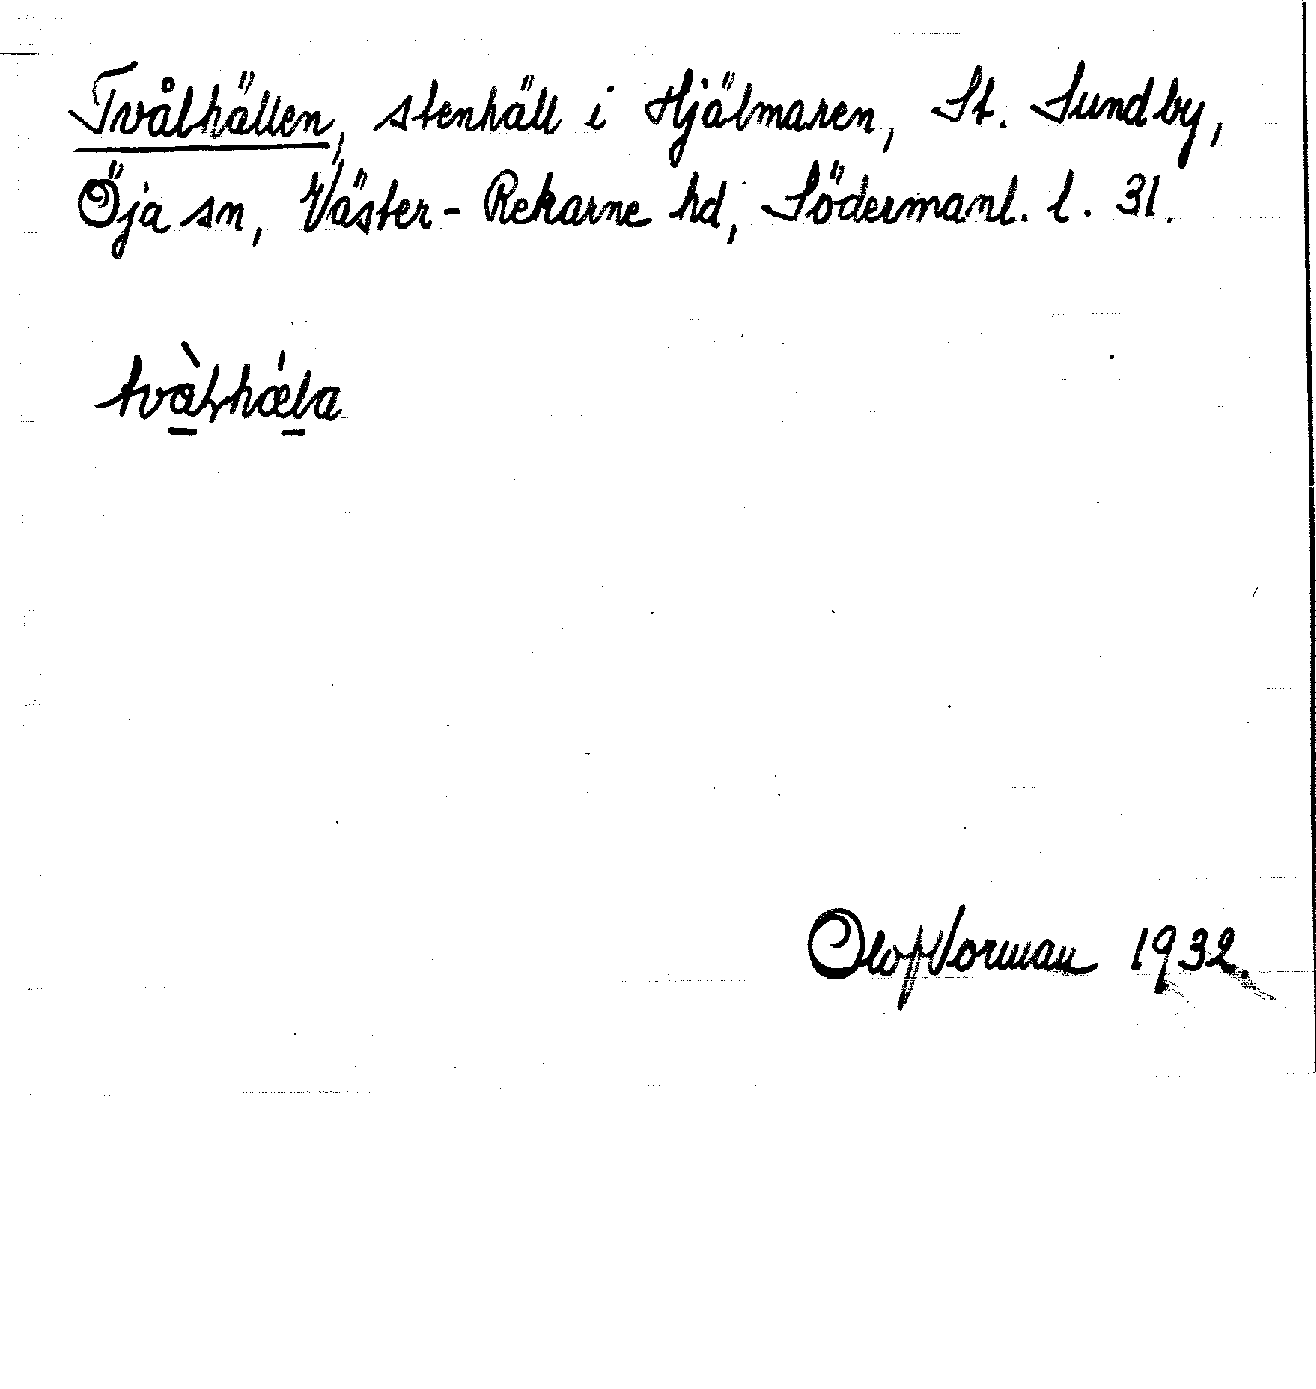 Tvålhällen, stenhäll i Hjälmaren, St. Sundby,
Öja sn, Väster-Rekarne hd, Södermanl. l. 31.
Olof Vorman 1932.